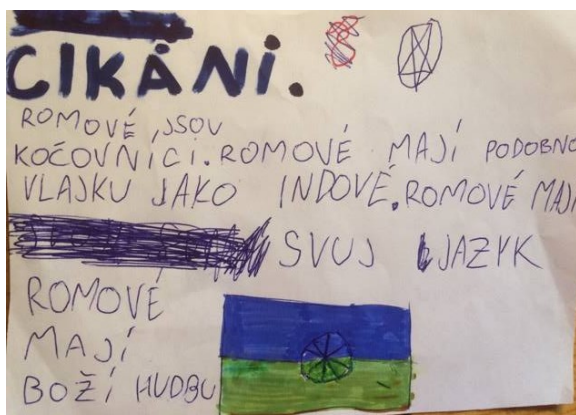 CIKÁNI.
ROMOVÉ JSOU
KOČOVNÍCI. ROMOVÉ MAJÍ PODOBNO
VLAJKU JAKO INDOVÉ. ROMOVÉ MAJÍ
SVUJ JAZYK
ROMOVÉ
MAJÍ
BOŽÍ HUDBU